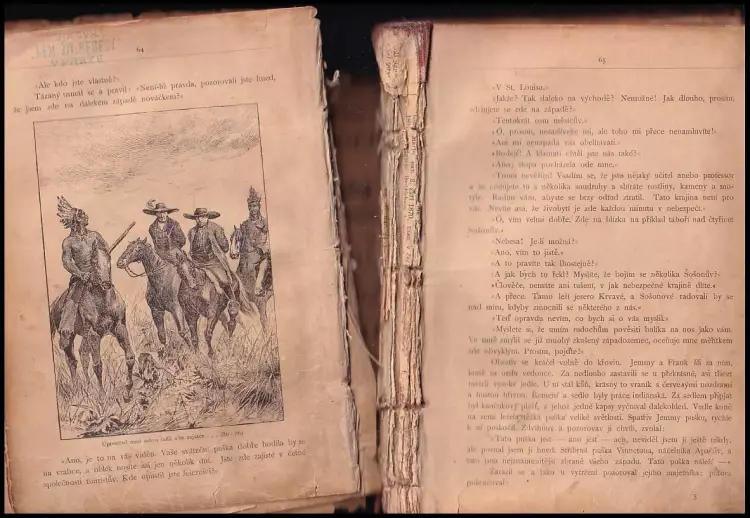 64
»Ale kdo jste vlastně?«
Tázaný usmál se a pravil: »Není-liž pravda, pozorovali jste hned,
že jsem zde na dalekém západě nováčkem?«
»Ano, je to na vás viděti. Vaše sváteční puška dobře hodila by se
na vrabce, a oblek nosíte asi jen několik dní. Jste zde zajisté v četné
společnosti touristův. Kde opustil jste
65
»V St. Louisu.«
»Jakže? Tak daleko na východě? Nemožné! Jak dlouho, prosím,
zdržujete se zde na západě?«
»Tentokrát osm měsícův.«
»O, prosím, nezazlívejte mi, ale toho mi přece nenamluvíte!«
»Ani mi nenapadá vás obelhávati.«
»A klamati chtěl jste nás také?«
»Ano, stopa pocházela ode mne.«
Vsadím se, že jste nějaký učitel anebo professor
a několika soudruhy a sbíráte rostliny, kameny a mo-
týle. Radím vám, abyste se brzy odtud ztratil. Tato krajina není pro
vás. Nevíte ani, že živobytí je zde každou minutu v nebezpečí.«
»O, vím velmi dobře. Zde na blízku na příklad táboří nad čtyřicet
Šošonův.«
»Nebesa! Je-li možná?«
»Ano, vím to jistě.«
»A to pravíte tak lhostejně?«
»A jak bych to řekl? Myslíte, že bojím se několika Šošonův?«
»Člověče, nemáte ani tušení, v jak nebezpečné krajině dlíte.«
»A přece. Tamo leží jezero Krvavé, a Šošonové radovali by se
nad mírů, kdyby zmocnili se některého z nás.«
»Teď opravdu nevím, co bych si o vás myslil.«
»Myslete si, že umím rudochům pověsiti bulíka na nos jako vám.
Ve mně zmýlil se již mnohý zkušený západozemec, oceňuje mne měřítkem
zde obvyklým. Prosím, pojďte!«
Obrátiv se kráčel volně do křovin. Jemmy a Frank šli za ním,
koně za uzdu vedouce. Za nedlouho zastavili se u překrásné, asi třicet
vysoké jedle. U ní stál kůň, krásný to vraník s červenými nozdrami
a hustou hřívou. Řemení a sedlo byly práce indiánská. Za sedlem připjat
byl kaučukový plášť, z jehož jedné kapsy vyčníval dalekohled. Vedle koně
na zemi ležela těžká puška veliké světlosti. Spatřiv Jemmy pušku, rychle
k ní poskočil. Zdvihnuv a pozorovav ji chvíli, zvolal:
»Tato puška jest — ano jest — ach, neviděl jsem ji ještě nikdy,
ale poznal jsem ji hned. Stříbrná puška Vinnetoua, náčelníka Apačův, a
tato jsou nejznamenitější zbraně všeho západu. Tato puška náleží —«
Zarazil se a jako u vytržení pozoroval jejího majetníka; potom
pokračoval:
5